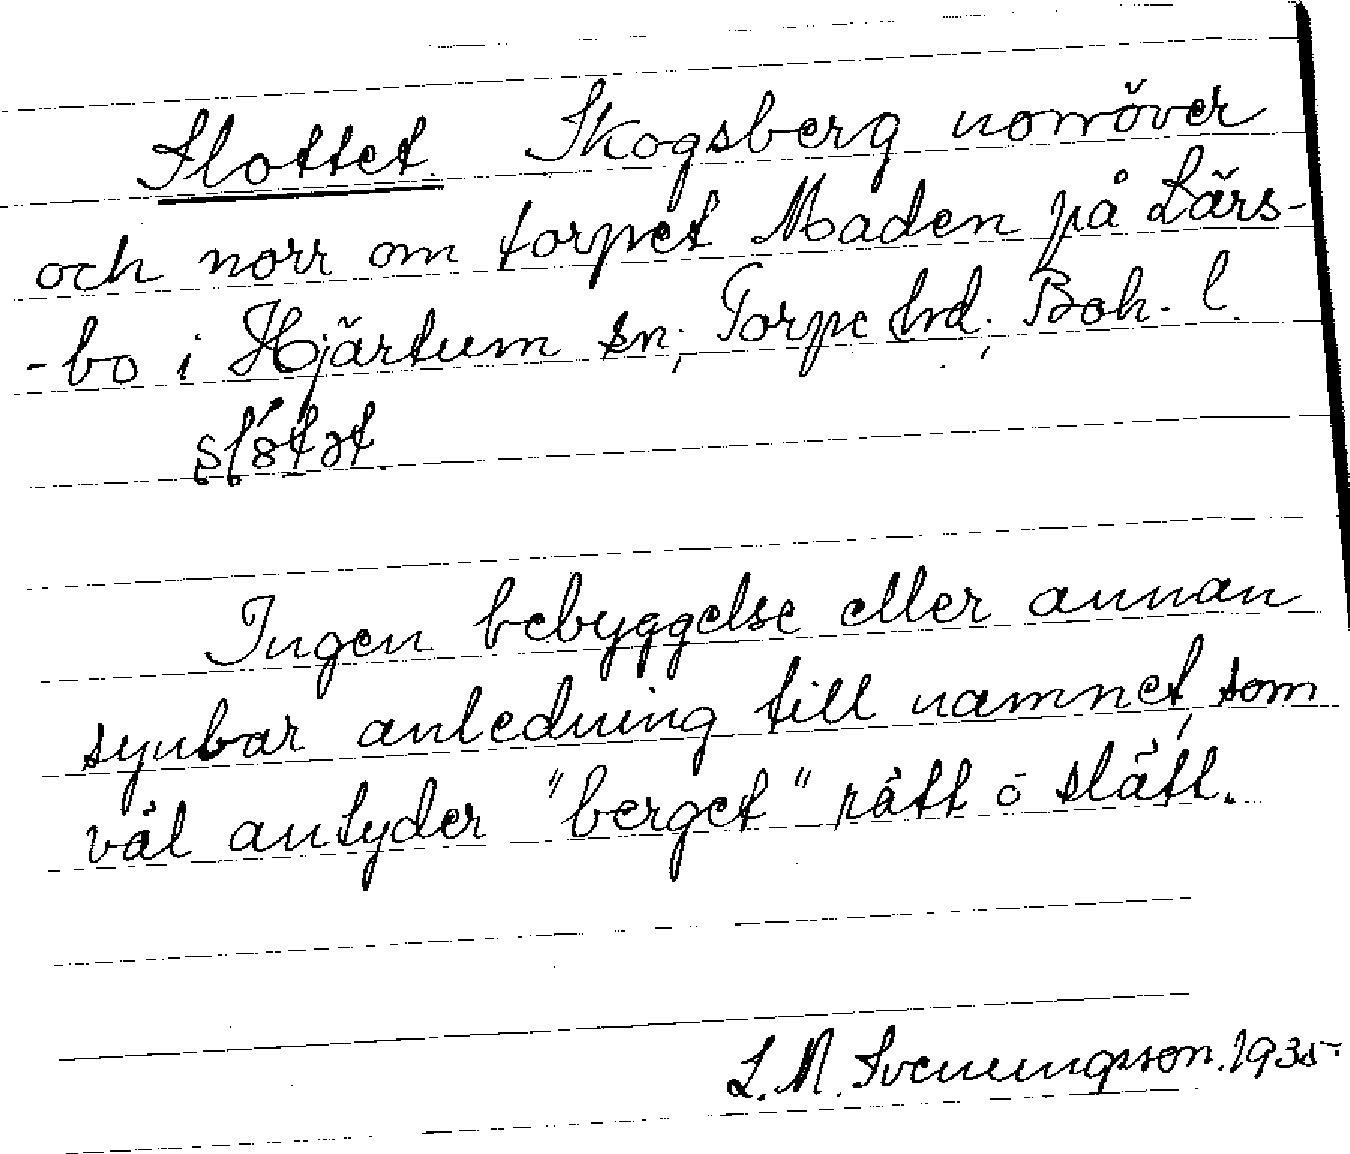 Slottet. Skogsberg norröver
och norr om torpet Maden på Lärs-
-bo i Hjärtum sn, Torpe hd, Boh. l.
Ingen bebyggelse eller annan
synbar anledning till namnet, som
väl antyder "berget" rätt o slätt.
L. M. Svenungsson. 1935.